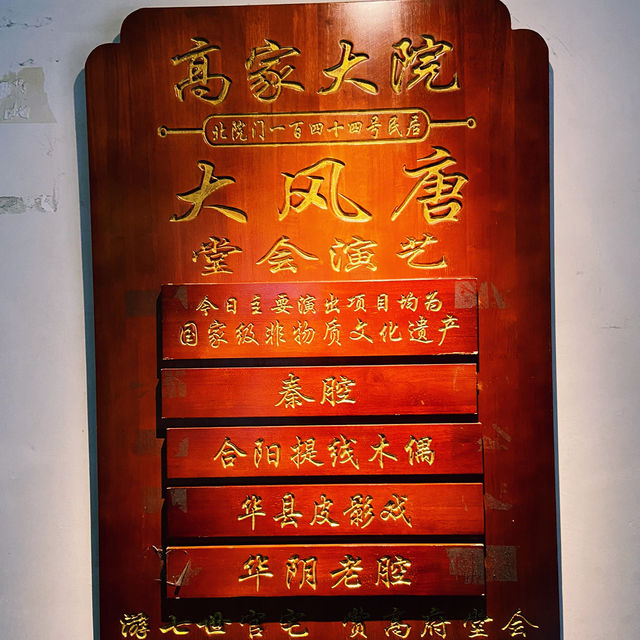 高家大院
北院门一百四十四号民居
大风唐
堂会演艺
今日主要演出项目均为
国家级非物质文化遗产
秦腔
合阳提线木偶
华县皮影戏
华阴老腔
游七世官宅 赏高府堂会